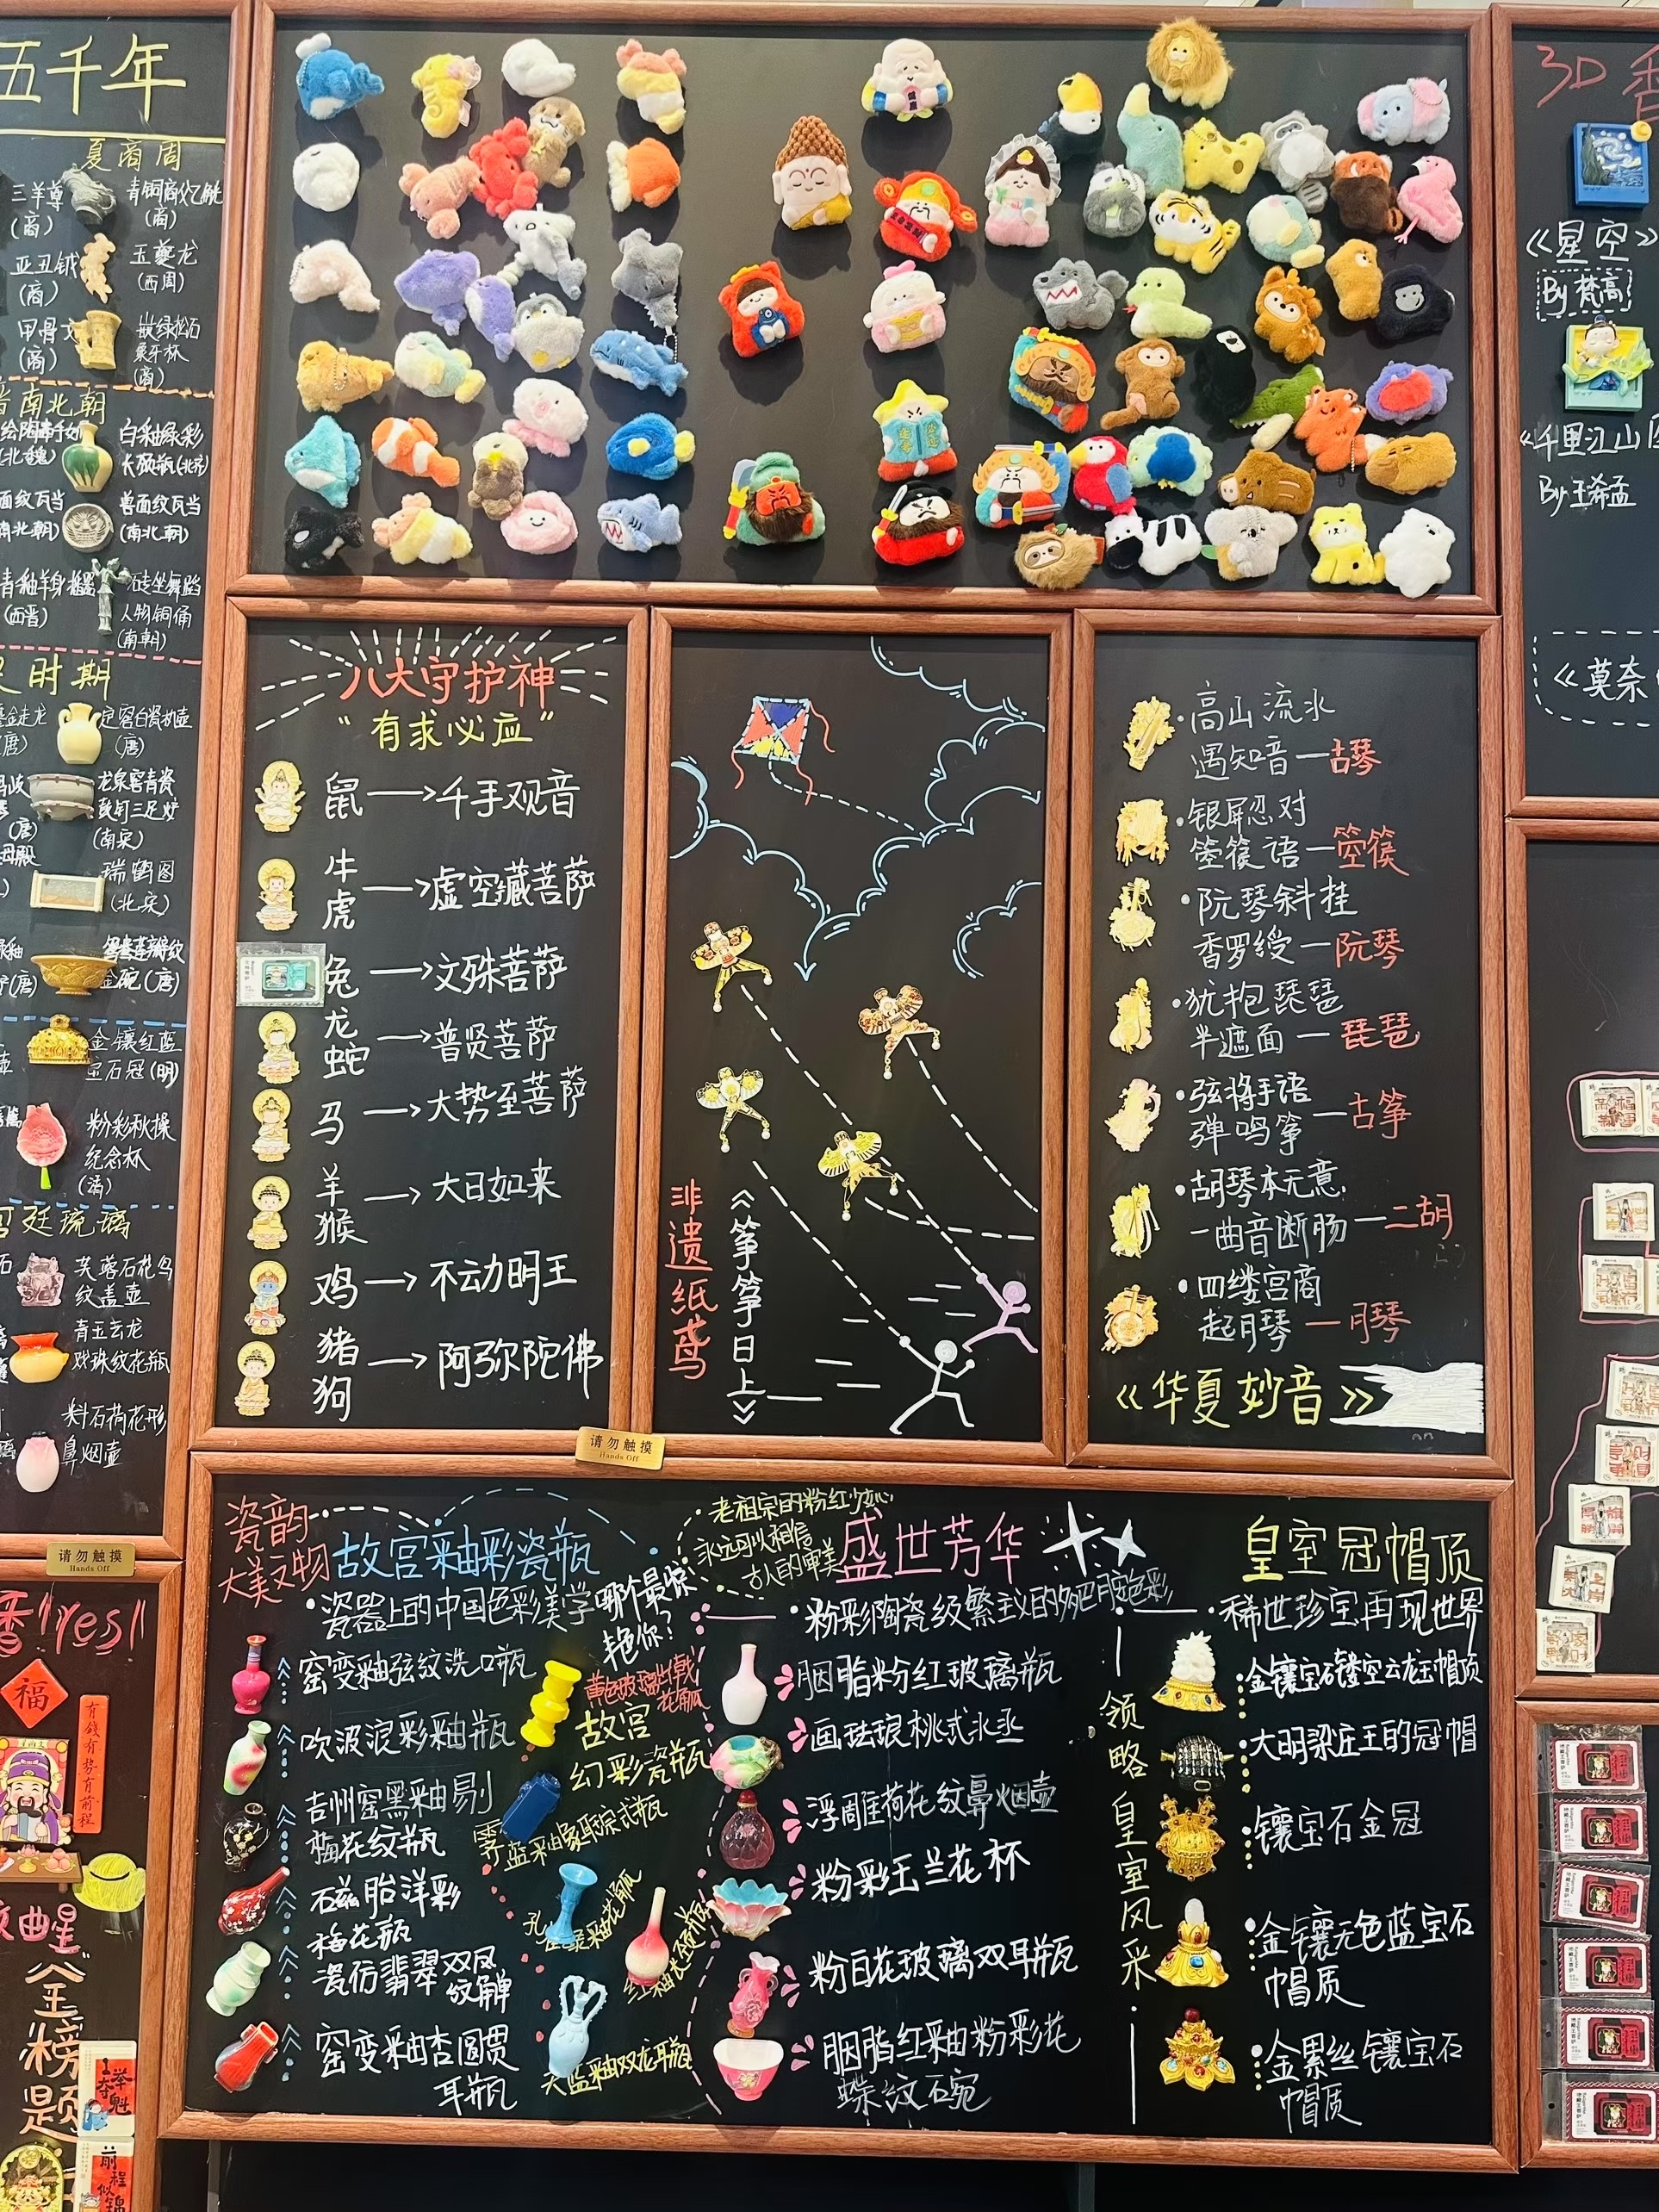 五千年
夏商周
三羊尊
(商)
青铜商亿觥
(商)
亚丑钺
(商)
玉夔龙
(西周)
甲骨文
(商)
嵌绿松石
象牙杯
(商)
晋南北朝
白釉绿彩
长颈瓶(北齐)
面纹瓦当
南北朝)
兽面纹瓦当
(南北朝)
青釉羊身
(西晋)
砖坐舞蹈
人物铜俑
(南朝)
时期
鎏金走龙
(唐)
定窑白瓷执壶
(唐)
龙泉窑青瓷
鼓钉三足炉
(南宋)
瑞鹤图
(北宋)
金碗(唐)
金镶红蓝
宝石冠(明)
粉彩秋操
纪念杯
(清)
宫廷琉璃
芙蓉石花鸟
纹盖壶
青玉云龙
戏珠纹花瓶
料石荷花形
鼻烟壶
请勿触摸
Hands Off
Yes!
福
有钱有势有前程
金榜题
一举夺魁
前程似锦
八大守护神
“有求必应”
鼠→千手观音
牛
虎→虚空藏菩萨
兔→文殊菩萨
龙
蛇→普贤菩萨
马→大势至菩萨
羊
猴→大日如来
鸡→不动明王
猪
狗→阿弥陀佛
非遗纸鸢
《筝筝日上》
请勿触摸
Hands Off
·高山流水
遇知音—古琴
·银屏忍对
箜篌语—箜篌
·阮琴斜挂
香罗绶—阮琴
·犹抱琵琶
半遮面—琵琶
·弦将手语
弹鸣筝—古筝
·胡琴本无意,
一曲音断肠—二胡
·四缕宫商
起月琴—月琴
《华夏妙音》
瓷韵
大美文物
故宫釉彩瓷瓶
·瓷器上的中国色彩美学
哪个最惊
艳你?
窑变釉弦纹洗口瓶
吹波浪彩釉瓶
吉州窑黑釉剔
梅花纹瓶
磁胎洋彩
梅花瓶
瓷仿翡翠双凤
纹觯
窑变釉杏圆贯
耳瓶
黄色玻璃出戟
花觚
故宫
幻彩瓷瓶
霁蓝釉象耳琮式瓶
孔雀绿釉花觚
红釉长颈瓶
天蓝釉双龙耳瓶
老祖宗的粉红少女心
永远可以相信
古人的审美
盛世芳华
·粉彩陶瓷级繁主义的多巴胺色彩
胭脂粉红玻璃瓶
画珐琅桃式水丞
浮雕荷花纹鼻烟壶
粉彩玉兰花杯
粉白花玻璃双耳瓶
胭脂红釉粉彩花
蝶纹石宛
皇室冠帽顶
·稀世珍宝再现世界
领略皇室风采
金镶宝石镂空云龙玉帽顶
大明梁庄王的冠帽
镶宝石金冠
金镶无色蓝宝石
帽质
金累丝镶宝石
帽质
3D
《星空》
By 梵高
《千里江山图
By 王希孟
《莫奈